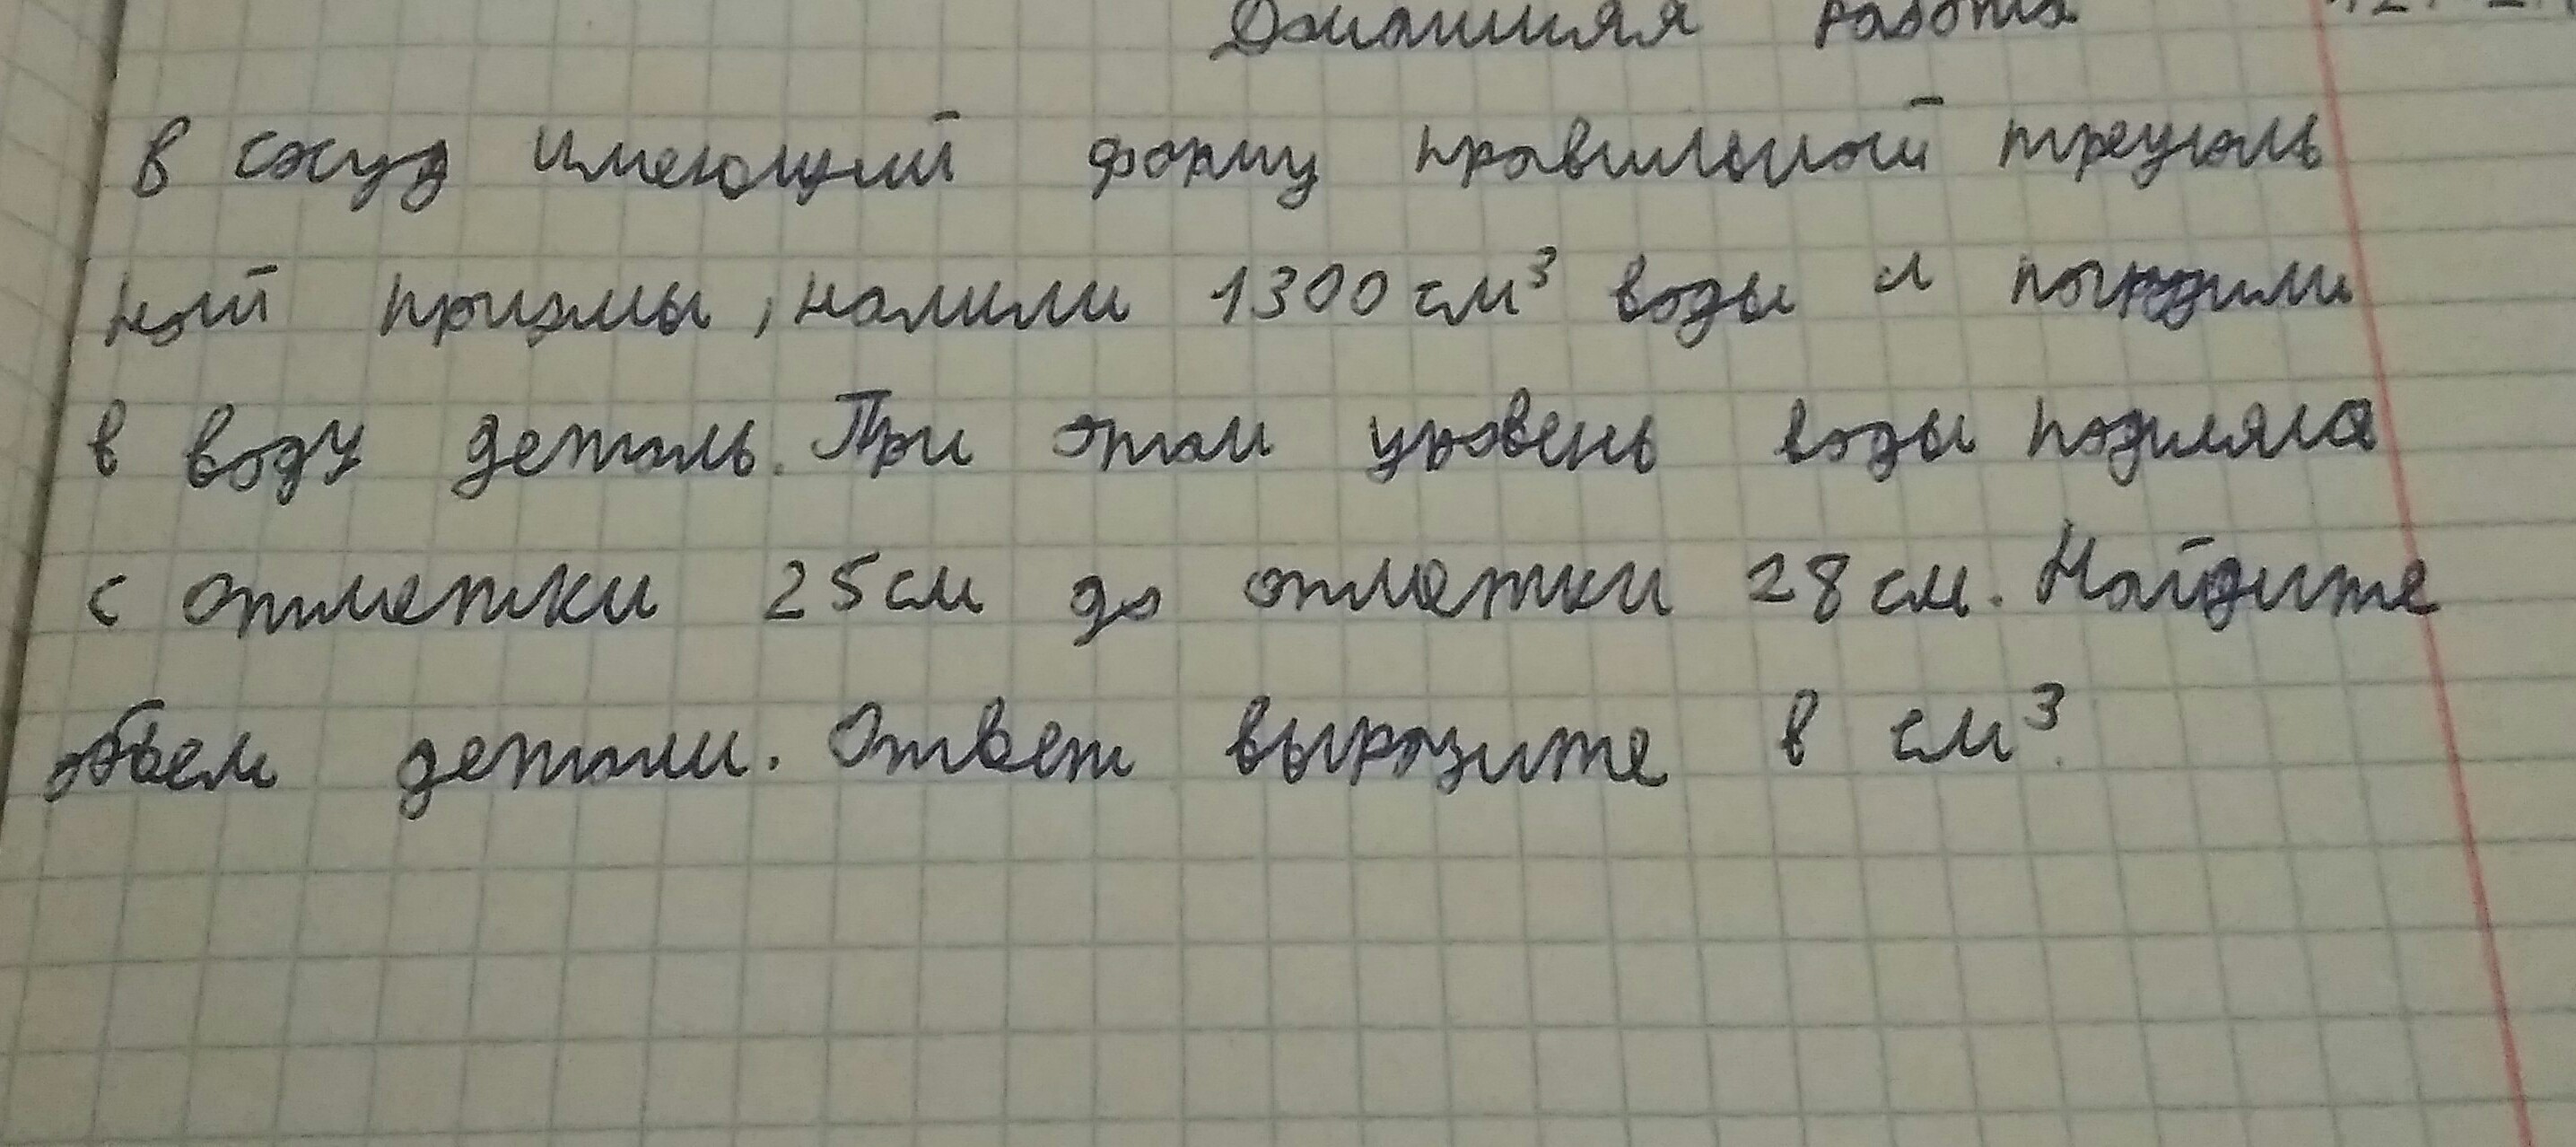 Домашняя работа
В сосуд имеющий форму правильной треуголь
ной призмы, налили 1300 см³ воды и погрузили
в воду деталь. При этом уровень воды поднялся
с отметки 25 см до отметки 28 см. Найдите
объем детали. Ответ выразите в см³.